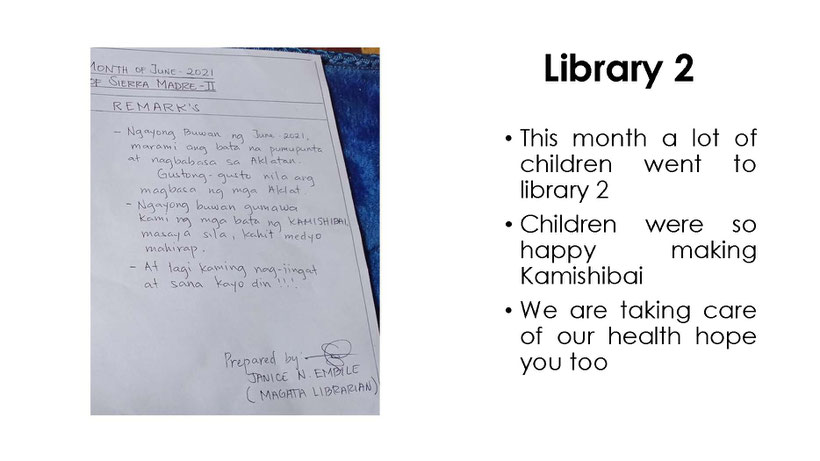 MONTH OF JUNE-2021
OF SIERRA MADRE-II
REMARK'S
- Ngayong Buwan ng June-2021,
marami ang bata na pumupunta
at nagbabasa sa Aklatan.
Gustong-gusto nila ang
magbasa ng mga Aklat.
- Ngayong buwan gumawa
kami ng mga bata ng KAMISHIBAI,
masaya sila, kahit medyo
mahirap.
- At lagi kaming nag-iingat
at sana kayo din !!!
Prepared by:
JANICE N. EMBILE
(MAGATA LIBRARIAN)
Library 2
• This month a lot of
children went to
library 2
• Children were so
happy making
Kamishibai
• We are taking care
of our health hope
you too